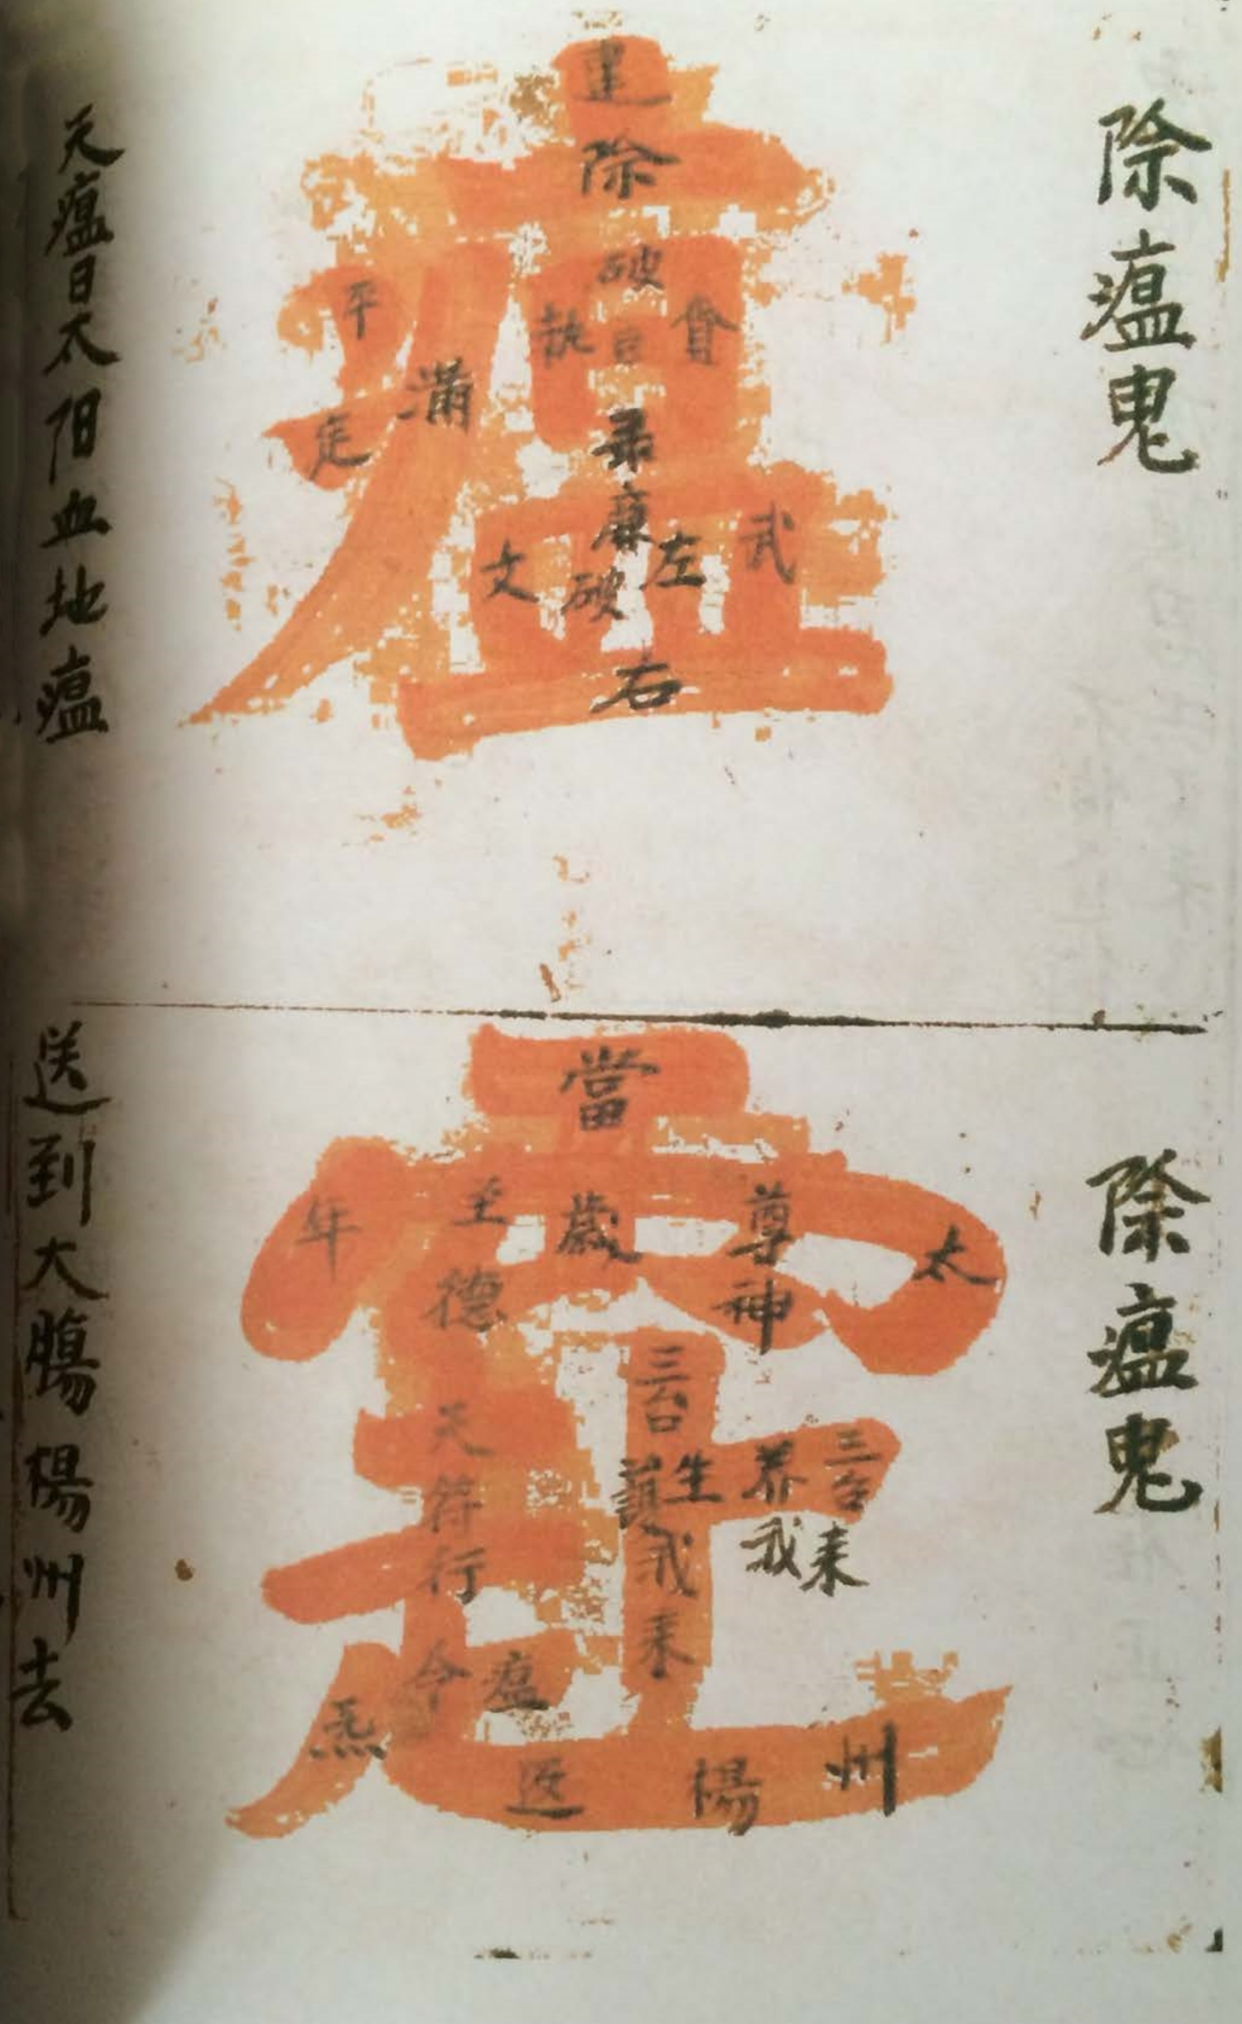 除瘟鬼
瘟
建
除
破
執
會
平
滿
定
廉
文
破
左
武
右
天瘟日太阳血地瘟
除瘟鬼
當
年
至德
歲
尊神
太
三台
生
养
三台
護我来
我来
天符行
令
瘟
炁
返
楊
州
送到大腸楊州去